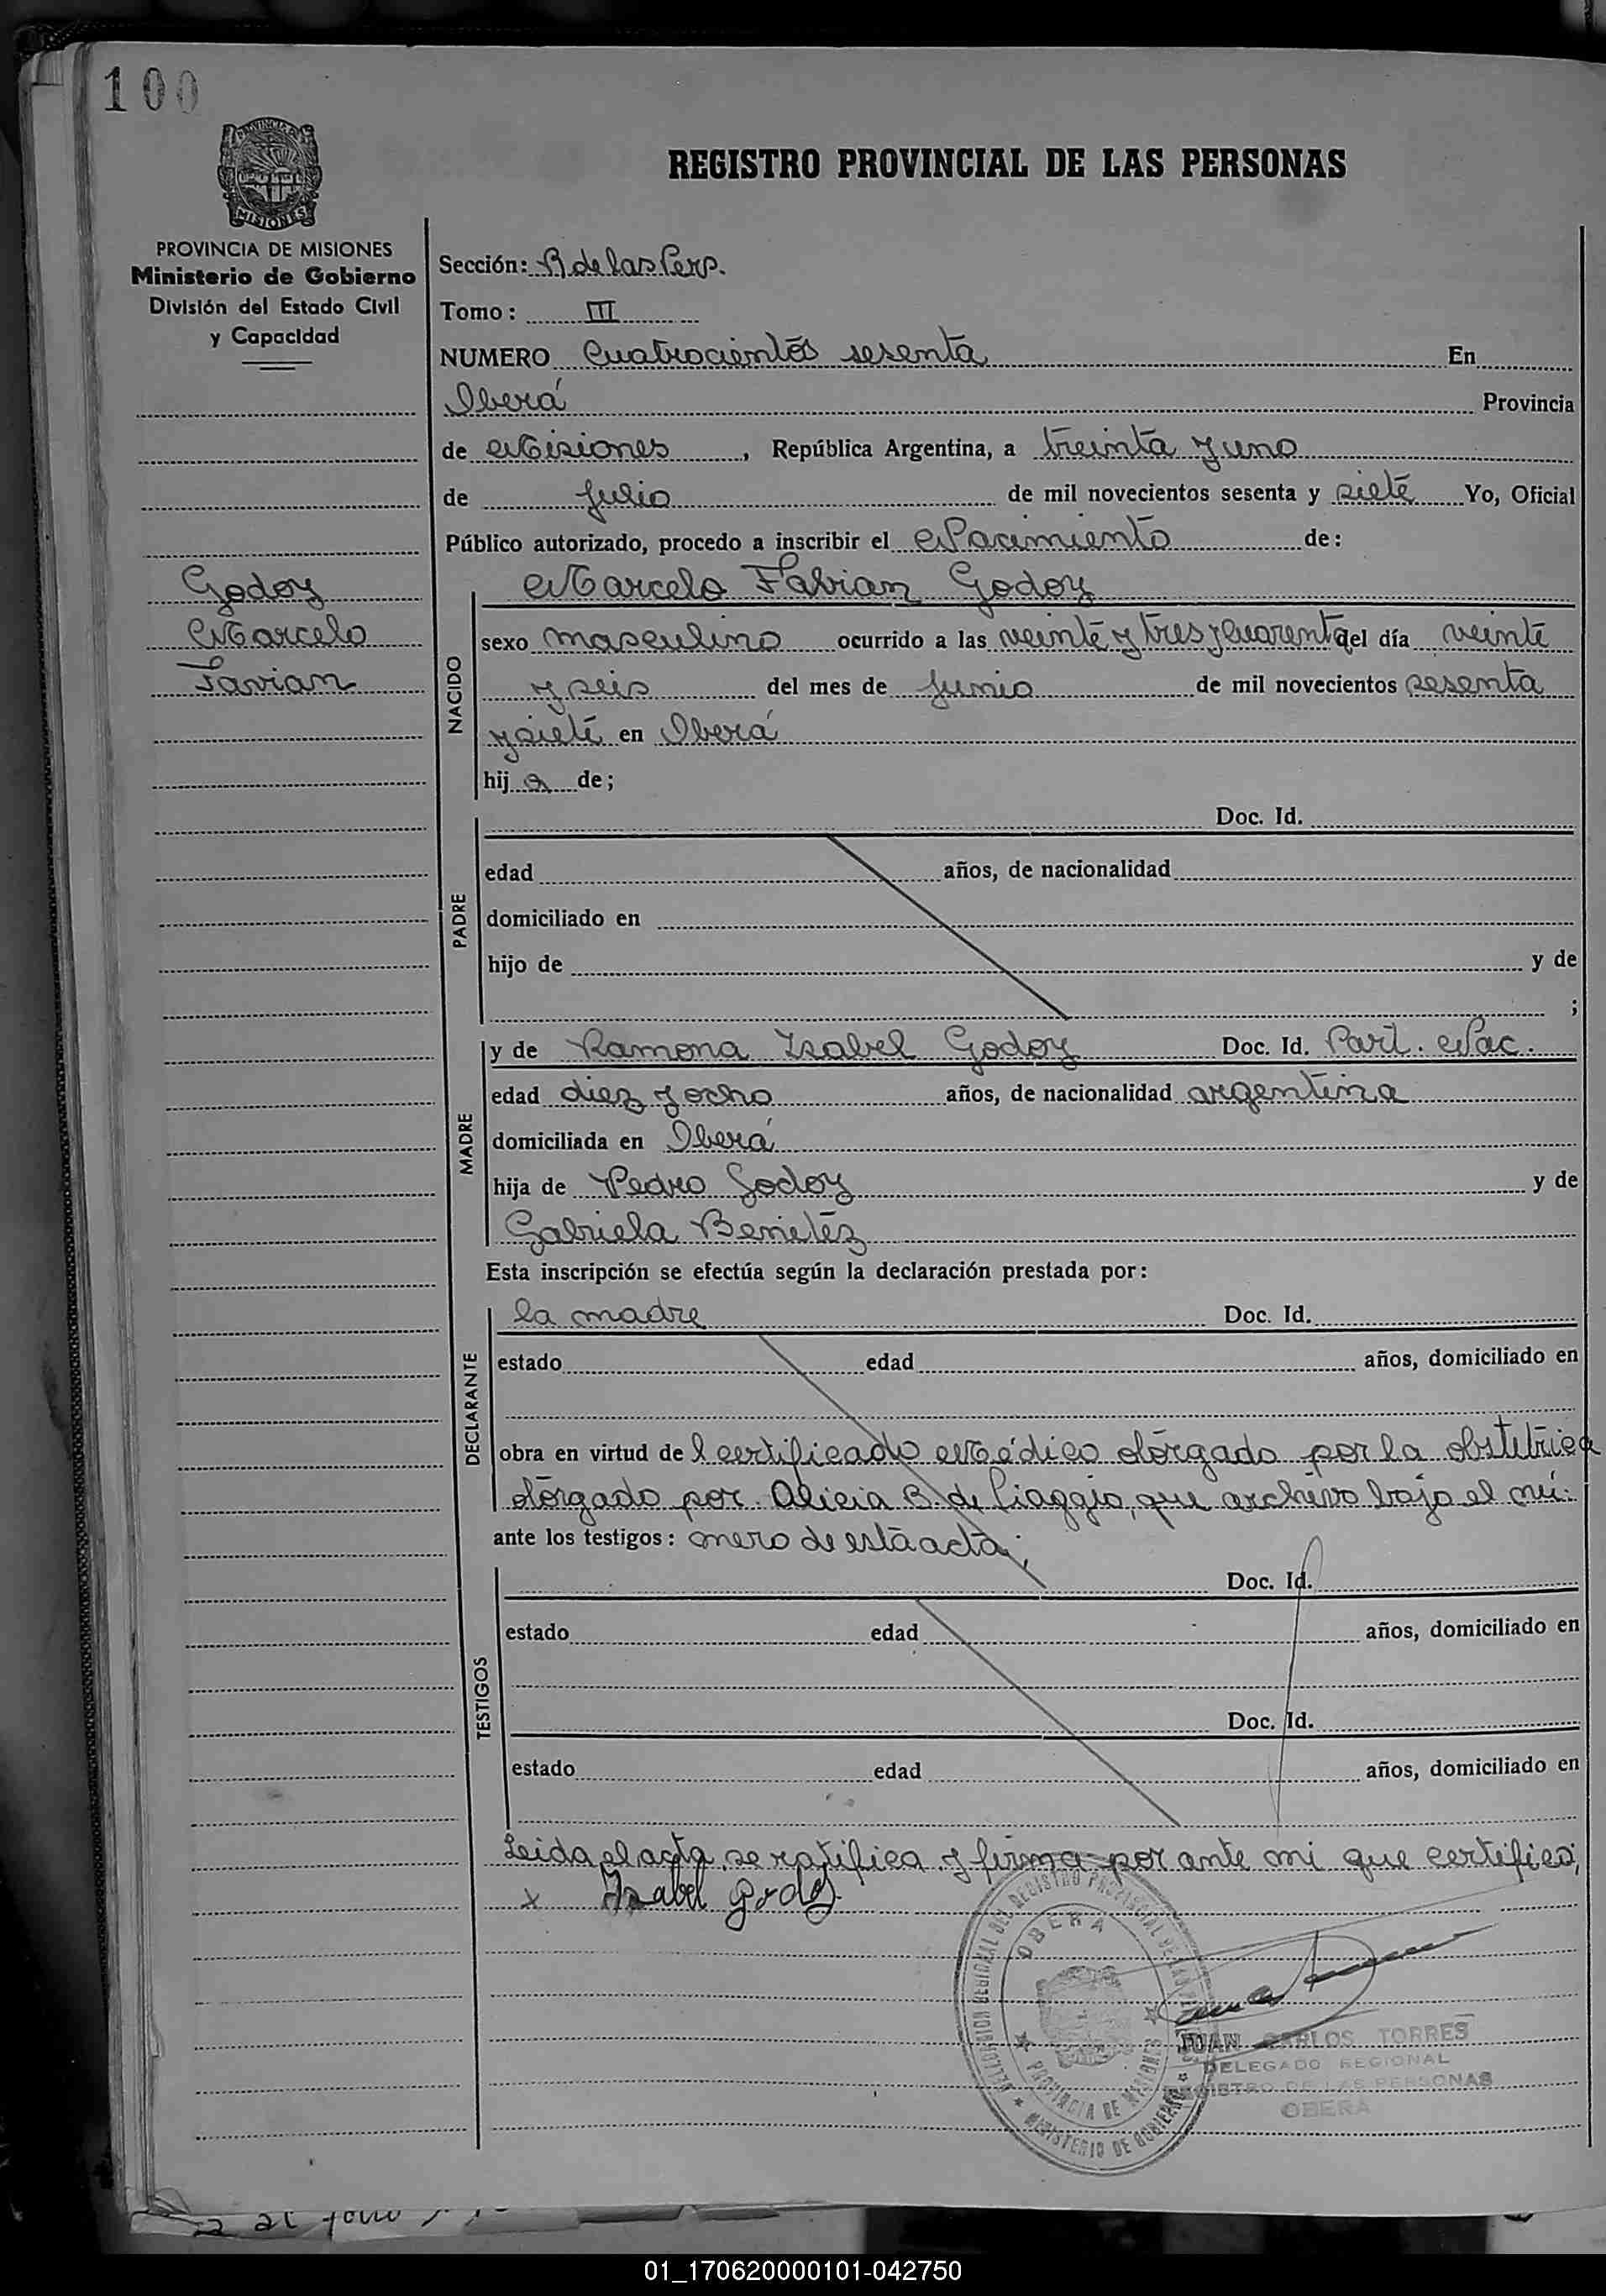 100
PROVINCIA DE
MISIONES
REGISTRO PROVINCIAL DE LAS PERSONAS
PROVINCIA DE MISIONES
Ministerio de Gobierno
División del Estado Civil
y Capacidad
Sección: R de las Pers.
Tomo: III
NUMERO Cuatrocientos sesenta En
Oberá Provincia
de Misiones, República Argentina, a treinta y uno
de Julio de mil novecientos sesenta y siete Yo, Oficial
Público autorizado, procedo a inscribir el Nacimiento de:
Godoy
Marcelo
Favian
NACIDO
Marcelo Fabian Godoy
sexo masculino ocurrido a las veinte y tres y cuarenta del día veinte
y seis del mes de Junio de mil novecientos sesenta
y siete en Oberá
hij o de;
PADRE
Doc. Id.
edad años, de nacionalidad
domiciliado en
hijo de y de
;
MADRE
y de Ramona Isabel Godoy Doc. Id. Part. Nac.
edad diez y ocho años, de nacionalidad argentina
domiciliada en Oberá
hija de Pedro Godoy y de
Gabriela Benitez
Esta inscripción se efectúa según la declaración prestada por:
DECLARANTE
la madre Doc. Id.
estado edad años, domiciliado en
obra en virtud de l certificado Médico otorgado por la obstetrica
otorgado por Alicia B. de Piaggio, que archivo bajo el nú-
ante los testigos: mero de esta acta;
TESTIGOS
Doc. Id.
estado edad años, domiciliado en
Doc. Id.
estado edad años, domiciliado en
Leida el acta, se ratifica y firma por ante mi que certifico;
x Isabel Godoy
DELEGACION REGIONAL DEL REGISTRO PROVINCIAL DE LAS
OBERA
PROVINCIA DE MISIONES
MINISTERIO DE GOBIERNO
JUAN CARLOS TORRES
DELEGADO REGIONAL
REGISTRO DE LAS PERSONAS
OBERA
01_170620000101-042750